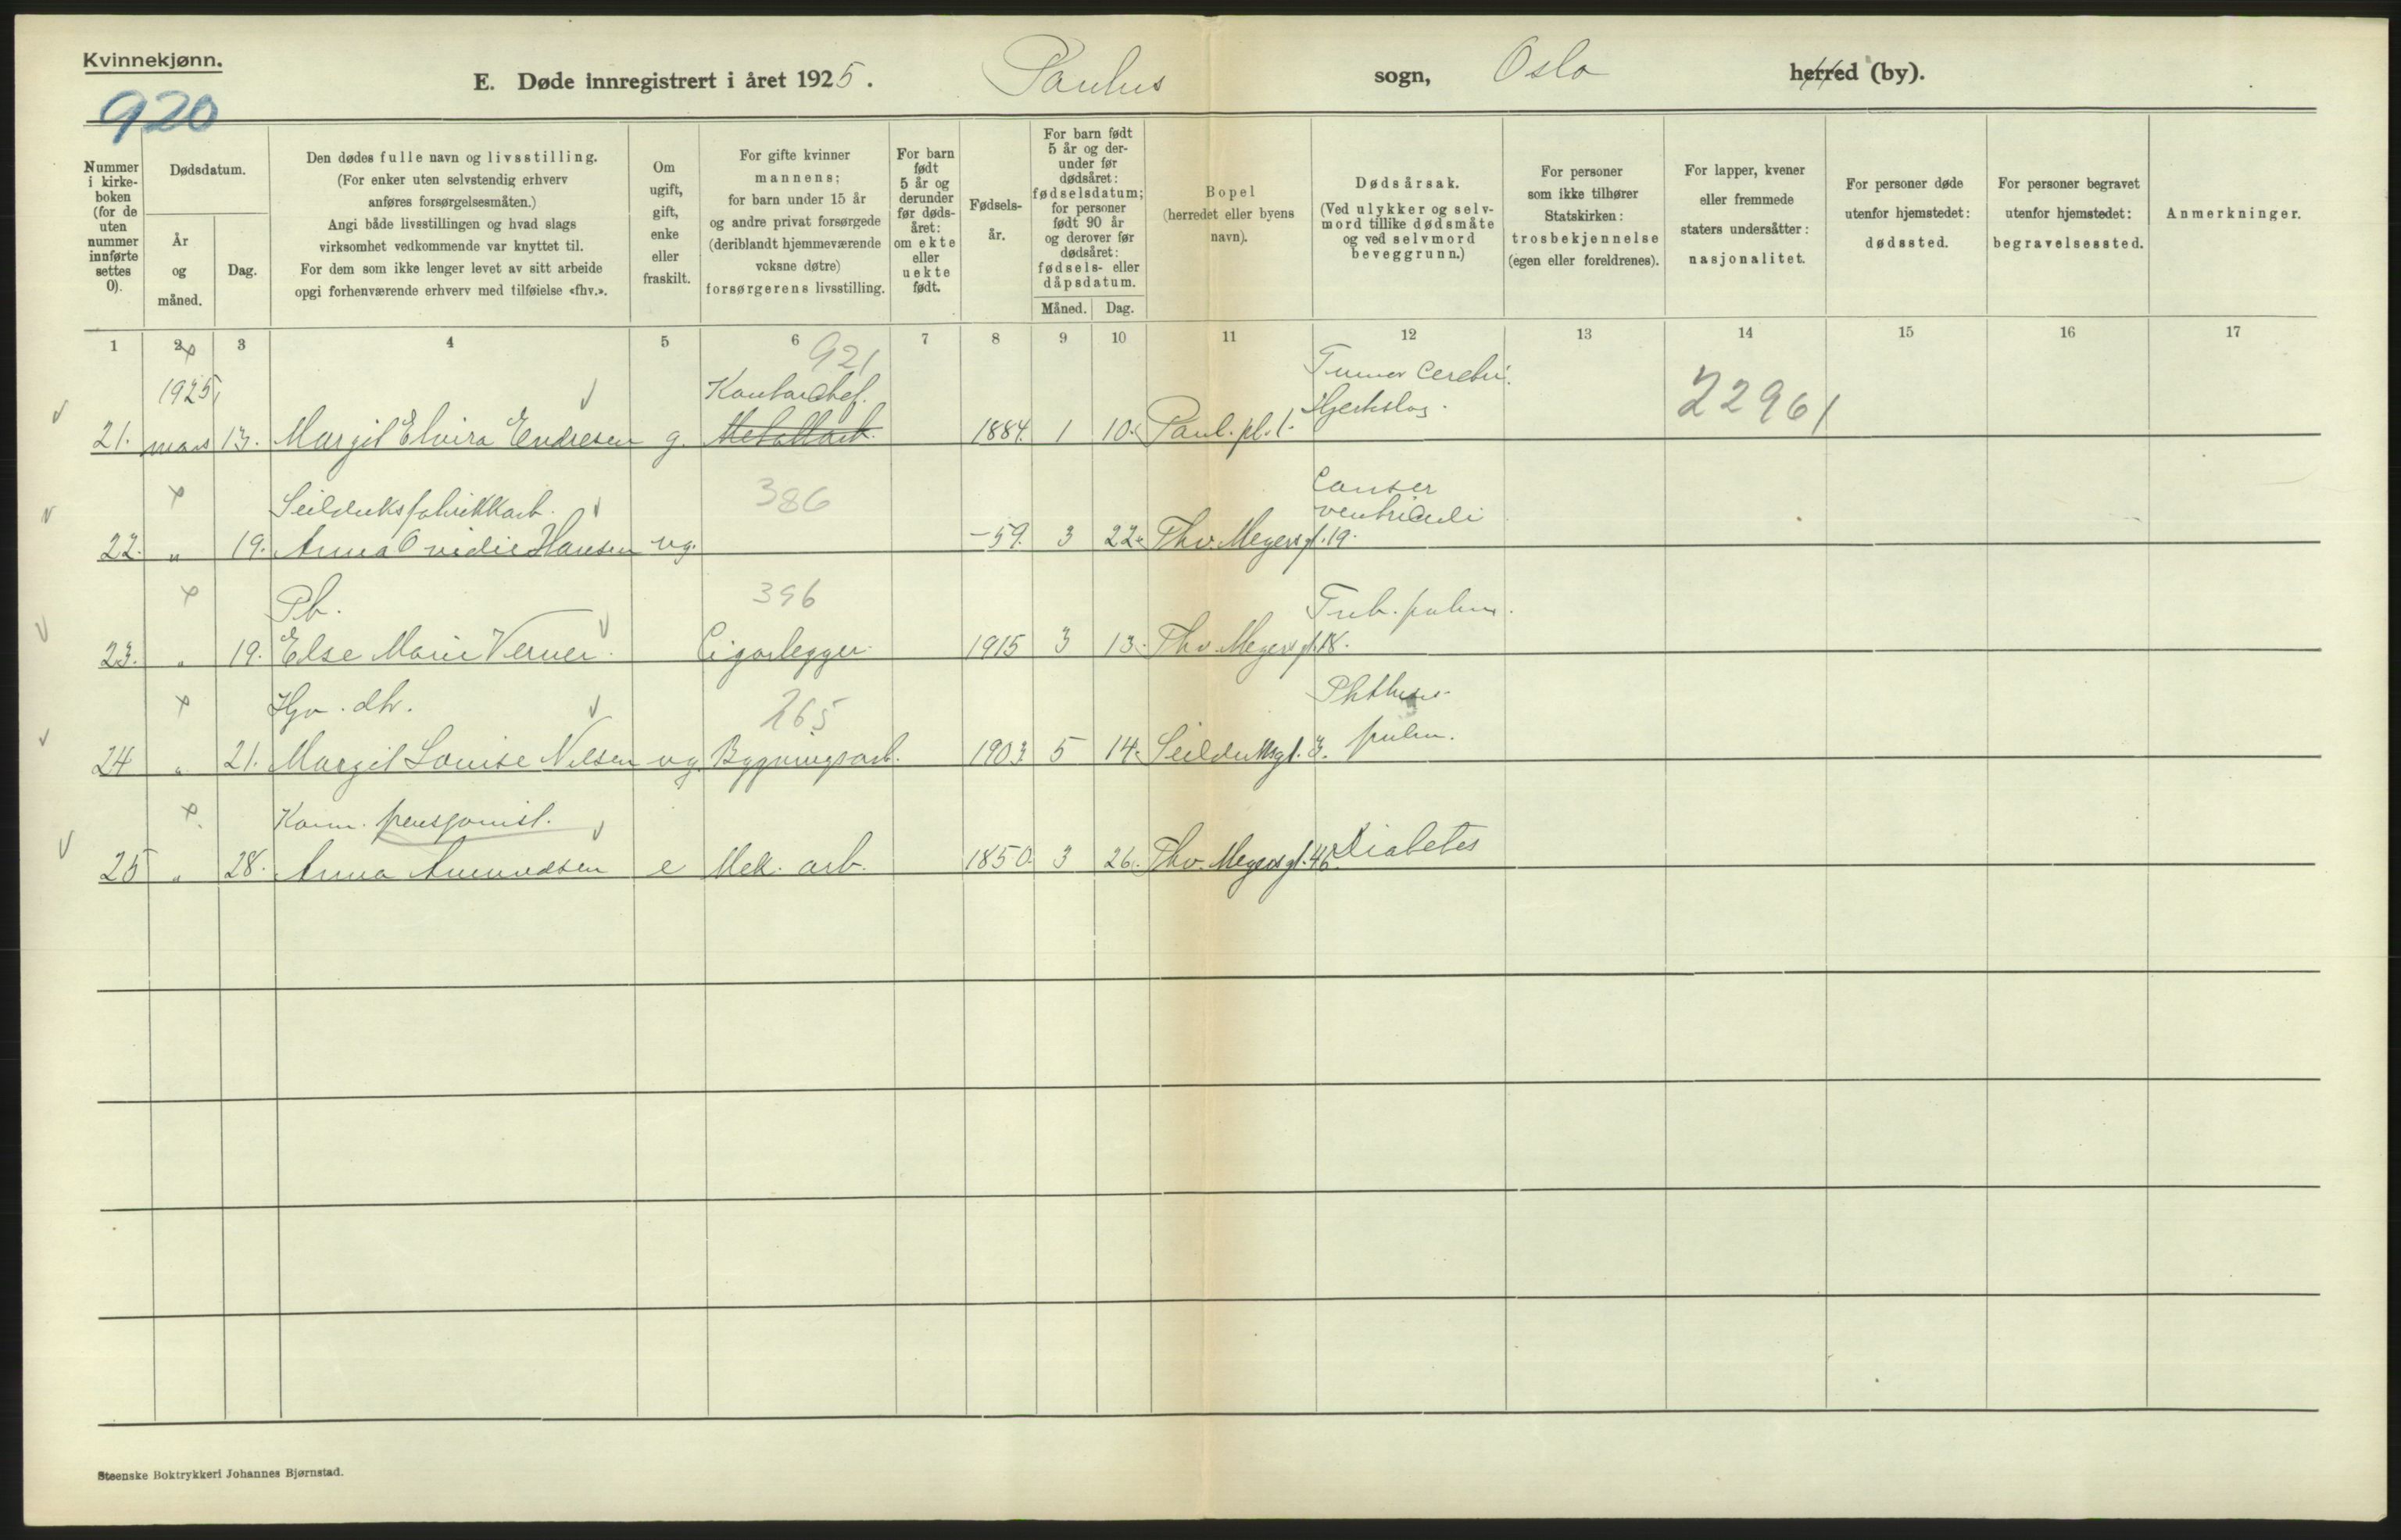 Kvinnekjønn.
E. Døde innregistrert i året 1925. Paulus sogn, Oslo herred (by).
920
Nummer i kirke- boken (for de uten nummer innførte settes 0).
Dødsdatum.
År og måned.
Dag.
Den dødes fulle navn og livsstilling.
(For enker uten selvstendig erhverv
anføres forsørgelsesmåten.)
Angi både livsstillingen og hvad slags
virksomhet vedkommende var knyttet til.
For dem som ikke lenger levet av sitt arbeide
opgi forhenværende erhverv med tilføielse «fhv.».
Om
ugift,
gift,
enke
eller
fraskilt.
For gifte kvinner
mannens;
for barn under 15 år
og andre privat forsørgede
(deriblandt hjemmeværende
voksne døtre)
forsørgerens livsstilling.
For barn
født
5 år og
derunder
før døds-
året:
om ekte
eller
uekte
født.
Fødsels-
år.
For barn født
5 år og der-
under før
dødsåret:
fødselsdatum;
for personer
født 90 år
og derover før
dødsåret:
fødsels- eller
dåpsdatum.
Måned. Dag.
Bopel
(herredet eller byens
navn).
Dødsårsak.
(Ved ulykker og selv-
mord tillike dødsmåte
og ved selvmord
beveggrunn.)
For personer
som ikke tilhører
Statskirken:
trosbekjennelse
(egen eller foreldrenes).
For lapper, kvener
eller fremmede
staters undersåtter:
nasjonalitet.
For personer døde
utenfor hjemstedet:
dødssted.
For personer begravet
utenfor hjemstedet:
begravelsessted.
Anmerkninger.
1 2 3 4 5 6 7 8 9 10 11 12 13 14 15 16 17
921
1925 Kontorchef. Tumor Cerebri. 22961
Hjerteslag.
21. mars 13. Margit Elvira Endresen g. Metallarb. 1884. 1 10. Paul. pl. 1.
Seilduksfabrikkarb. 386 Canser
ventriculi
22. " 19. Anna Ovidie Hansen ug. -59. 3 22. Thv. Meyersgt. 19.
Pb. 396 Tub. pulm.
23. " 19. Else Marie Verner. Cigarlegger. 1915 3 13. Thv. Meyersgt. 18.
Hjv. dtr. 265 Phthisis
pulm.
24 " 21. Margit Louise Nilsen ug. Bygningsarb. 1903 5 14. Seilduksgt. 3.
Kom. pensjonist.
25 " 28. Anna Amundsen e Mek. arb. 1850 3 26. Thv. Meyersgt. 46. Diabetes
Steenske Boktrykkeri Johannes Bjørnstad.